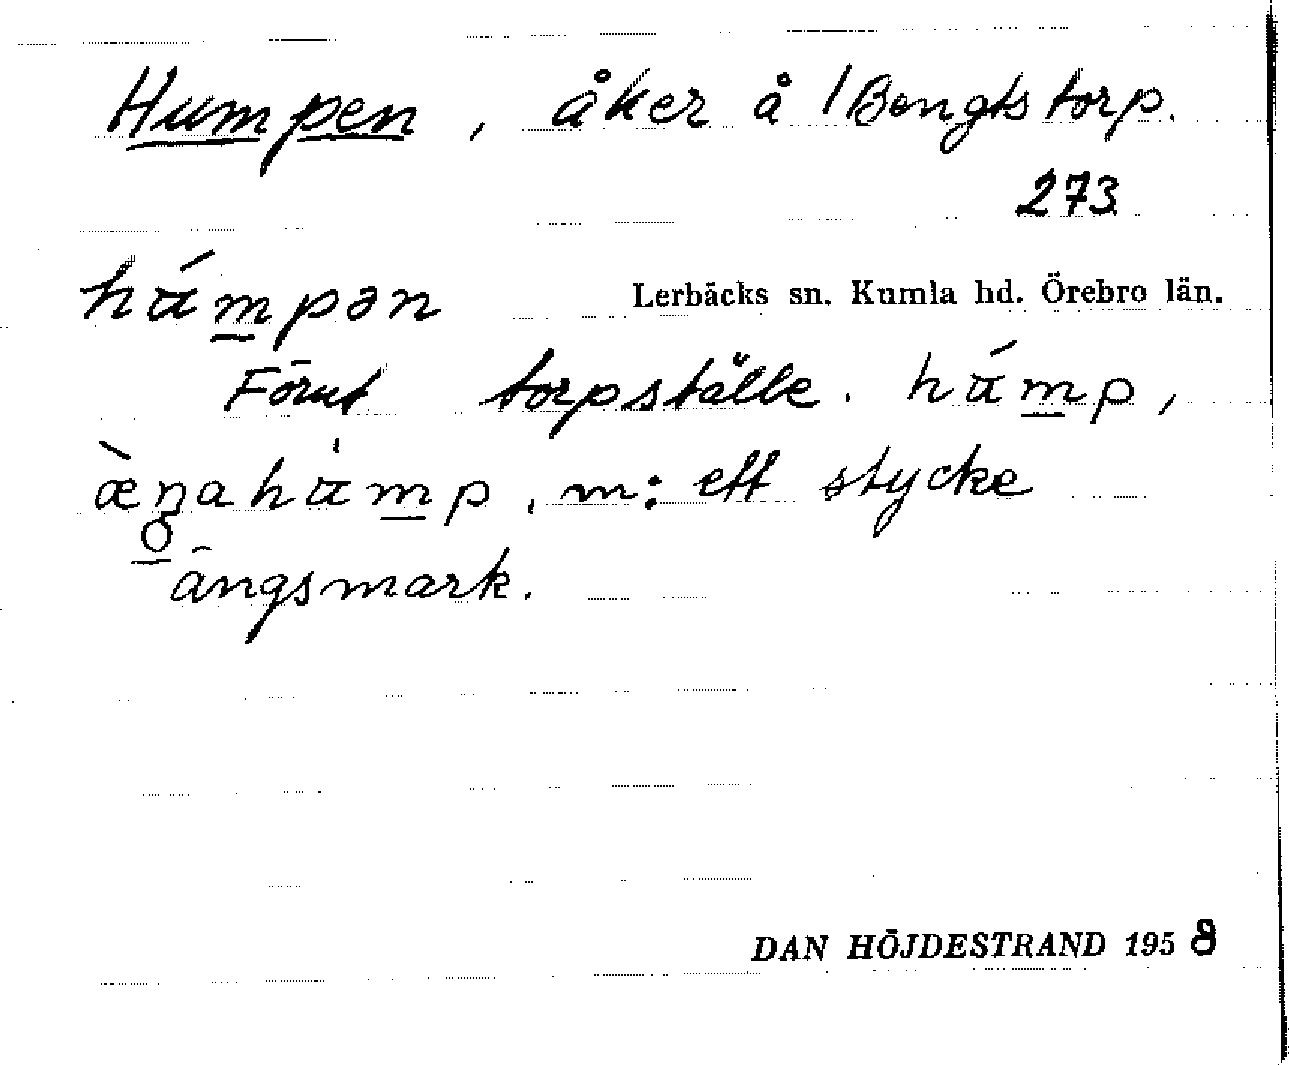 Humpen, åker å 1 Bengtstorp.
273
hú̵m̲pən
Lerbäcks sn. Kumla hd. Örebro län.
Förut torpställe. hú̵m̲p,
æ̀ŋahù̵m̲p, m: ett stycke
ängsmark.
DAN HÖJDESTRAND 1958